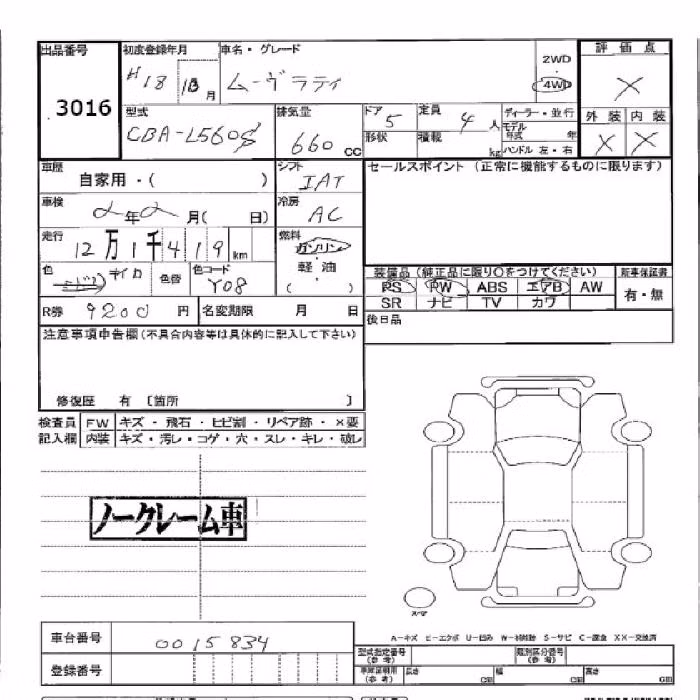 出品番号 初度登録年月 車名・グレード 評価点
3016 H18 10月 ムーヴラテ 2WD 4WD ×
型式 排気量 ドア 定員 ディーラー・並行 外装 内装
CBA-L560S 660cc 5 4人 モデル年式 年 × ×
形状 積載 kg ハンドル 左・右
車歴 シフト セールスポイント (正常に機能するものに限ります)
自家用・( ) IAT
車検 2年2月( 日) 冷房 AC
走行 12万1千419km 燃料 ガソリン
色 色替 色コード 軽・油
Y08 ( )
装備品(純正品に限り○をつけてください) 新車保証書
PS PW ABS エアB AW 有・無
SR ナビ TV カワ
R券 9200円 名変期限 月 日 後日品
注意事項申告欄(不具合内容等は具体的に記入して下さい)
修復歴 有 〔箇所 〕
検査員 FW キズ・飛石・ヒビ割・リペア跡・×要
記入欄 内装 キズ・汚レ・コゲ・穴・スレ・キレ・破レ
ノークレーム車
スペア
A-キズ E-エクボ U-凹み W-補修跡 S-サビ C-腐食 XX-交換済
車台番号 0015834 型式指定番号(参考) 類別区分番号(参考)
登録番号 (参考) 長さ cm 幅 cm 高さ cm